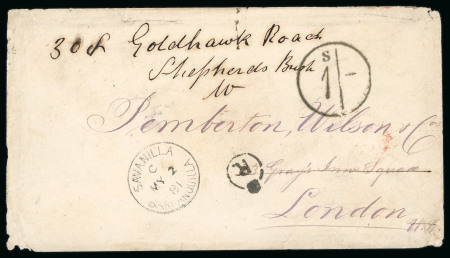 308 Goldhawk Road
Shepherds Bush
W
S
1/-
Pemberton, Wilson & Co
Gray's Inn Square
London
W.C.
SAVANILLA
C
MY 2
81
BARRANQUILLA
R